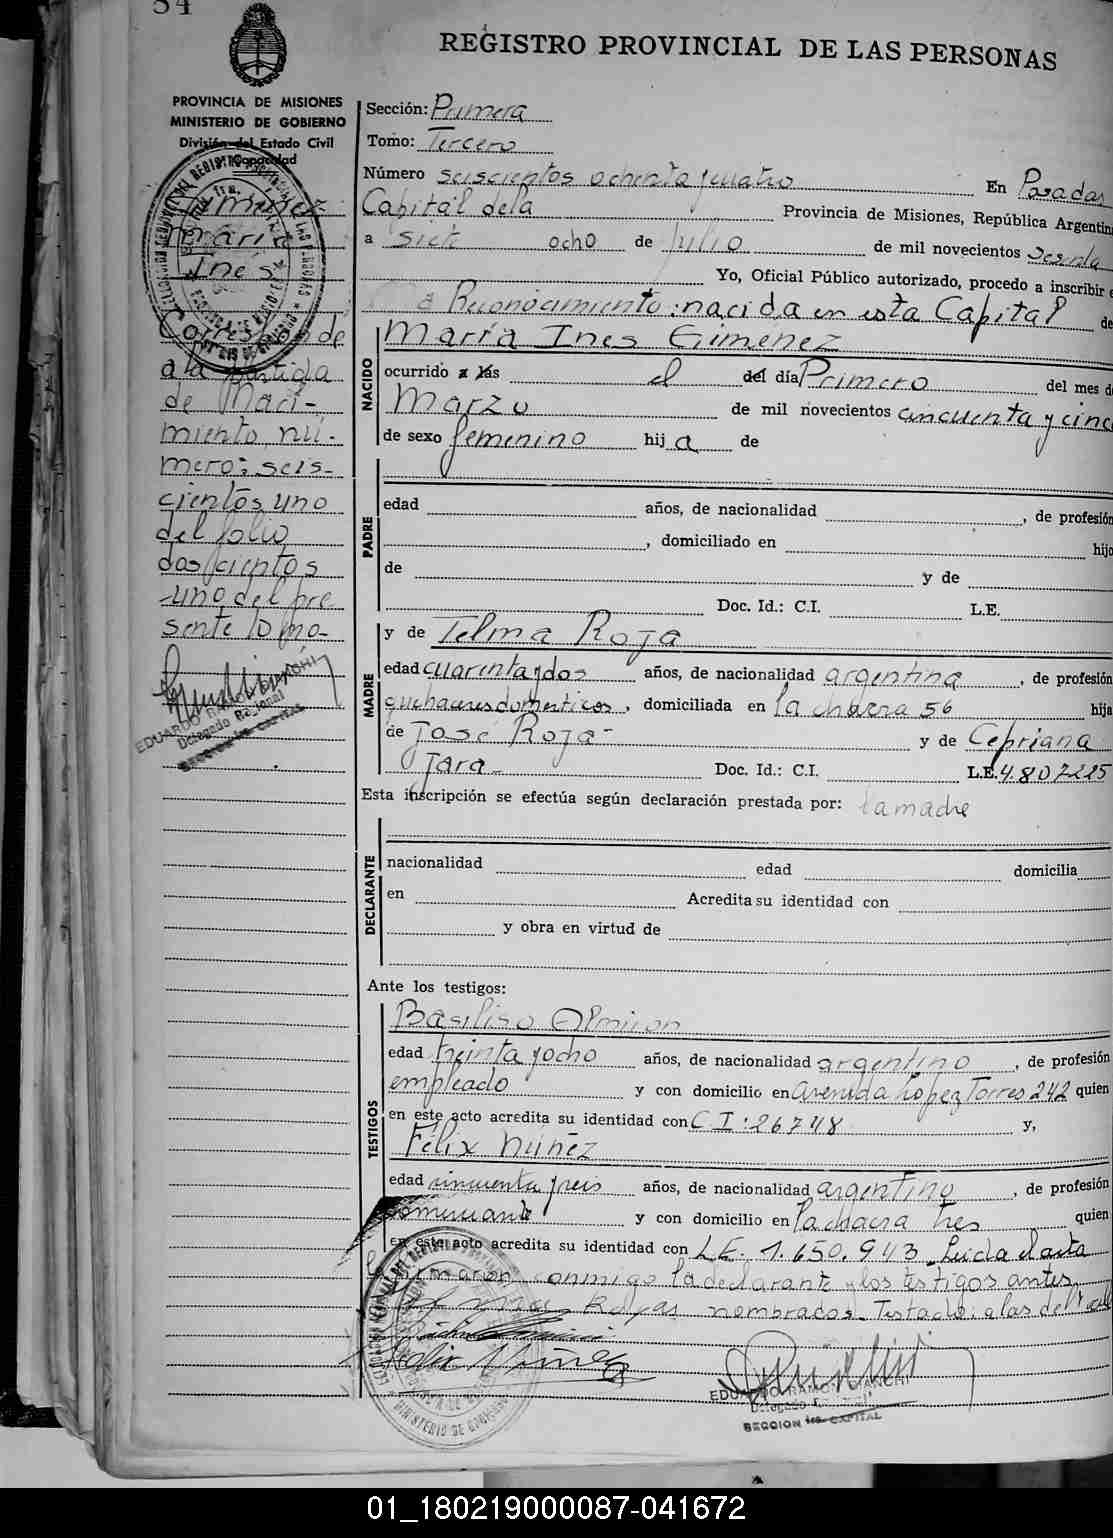 REGISTRO PROVINCIAL DE LAS PERSONAS
PROVINCIA DE MISIONES
MINISTERIO DE GOBIERNO
División del Estado Civil
Capacidad
María
Ines
Corresponde
a la partida
de Naci-
miento nú-
mero: seis-
cientos uno
del folio
doscientos
uno del pre
sente tomo-
EDUARDO RAMON
Delegado Regional
SECCION 1ra. CAPITAL
Sección: Primera
Tomo: Tercero
Número seiscientos ochenta y cuatro En Posadas
Capital de la Provincia de Misiones, República Argentin
a siete ocho de Julio de mil novecientos sesenta
Yo, Oficial Público autorizado, procedo a inscribir e
Reconocimiento: nacida en esta Capital de
NACIDO
María Ines Gimenez
ocurrido a las el del día Primero del mes d
Marzo de mil novecientos cincuenta y cinc
de sexo femenino hij a de
PADRE
edad años, de nacionalidad , de profesión
, domiciliado en hijo
de y de
Doc. Id.: C.I. L.E.
MADRE
y de Telma Roja
edad cuarenta y dos años, de nacionalidad argentina , de profesión
quehaceres domesticos , domiciliada en la chacra 56 hija
de José Roja- y de Cepriana
Jara- Doc. Id.: C.I. L.E. 4.807225
Esta inscripción se efectúa según declaración prestada por: la madre
DECLARANTE
nacionalidad edad domicilia
en Acredita su identidad con
y obra en virtud de
Ante los testigos:
TESTIGOS
Basiliso Almiron
edad treinta y ocho años, de nacionalidad argentino , de profesión
empleado y con domicilio en avenida Lopez Torres 242 quien
en este acto acredita su identidad con C.I: 26748 y,
Félix Núñez
edad cincuenta y seis años, de nacionalidad argentino , de profesión
comerciante y con domicilio en la chacra tres quien
en este acto acredita su identidad con L.E. 1.650.943 Leida el acta
firmaron conmigo la declarante y los testigos antes
nombrados. Testado: a las del
EDUARDO RAMON
SECCION 1ra. CAPITAL
01_180219000087-041672